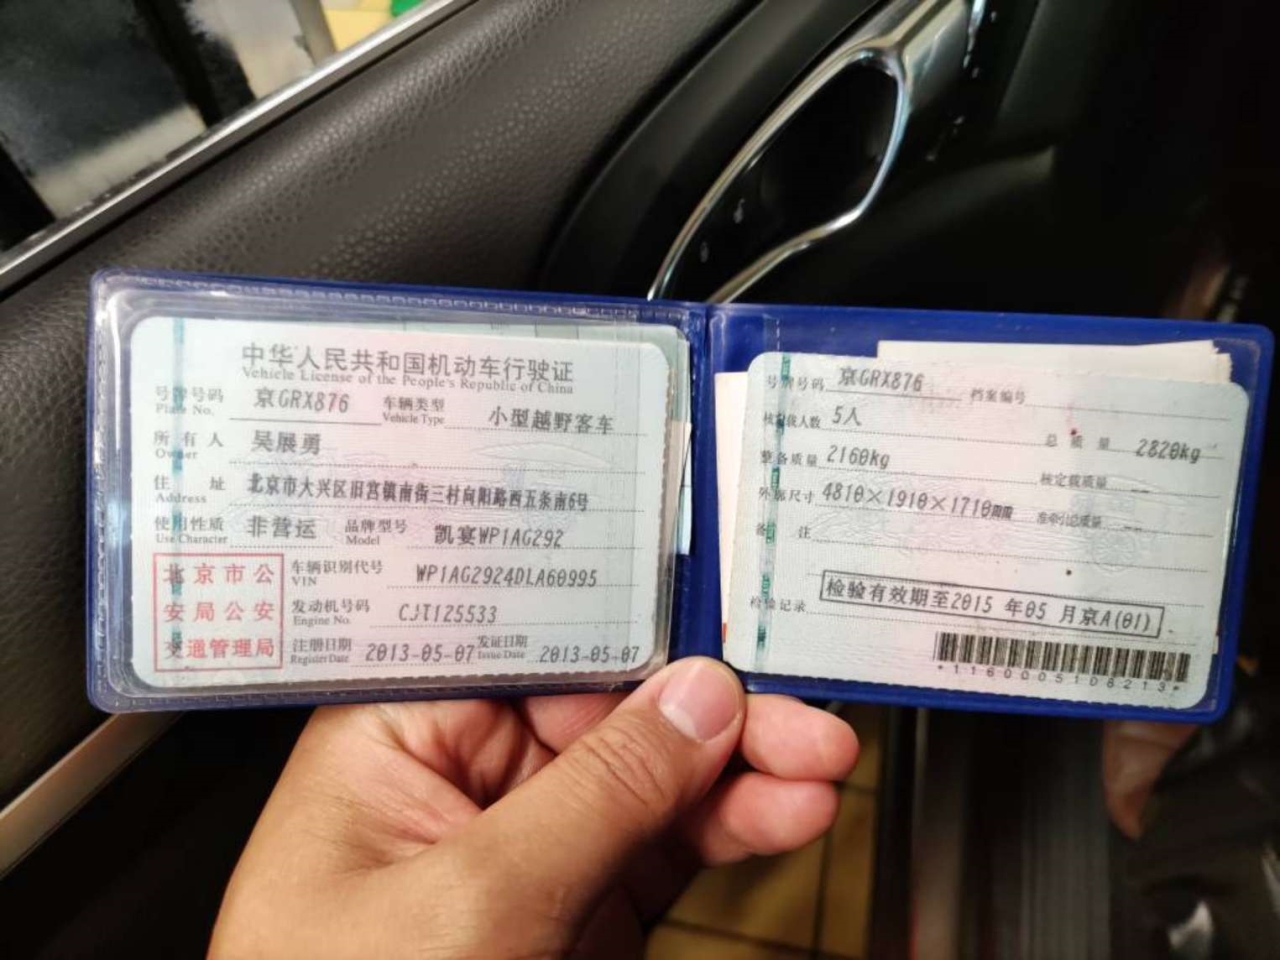 中华人民共和国机动车行驶证
Vehicle License of the People's Republic of China
号牌号码 京GRX876 车辆类型 小型越野客车
Plate No. Vehicle Type
所有人 吴展勇
Owner
住址 北京市大兴区旧宫镇南街三村向阳路西五条南6号
Address
使用性质 非营运 品牌型号 凯宴WP1AG292
Use Character Model
北京市公安局公安交通管理局
车辆识别代号 WP1AG2924DLA60995
VIN
发动机号码 CJT125533
Engine No.
注册日期 2013-05-07 发证日期 2013-05-07
Register Date Issue Date
号牌号码 京GRX876 档案编号
核定载人数 5人 总质量 2820kg
整备质量 2160kg 核定载质量 --
外廓尺寸 4810×1910×1710mm 准牵引总质量 --
备注
检验记录 检验有效期至2015年05月京A(01)
*1160005108213*